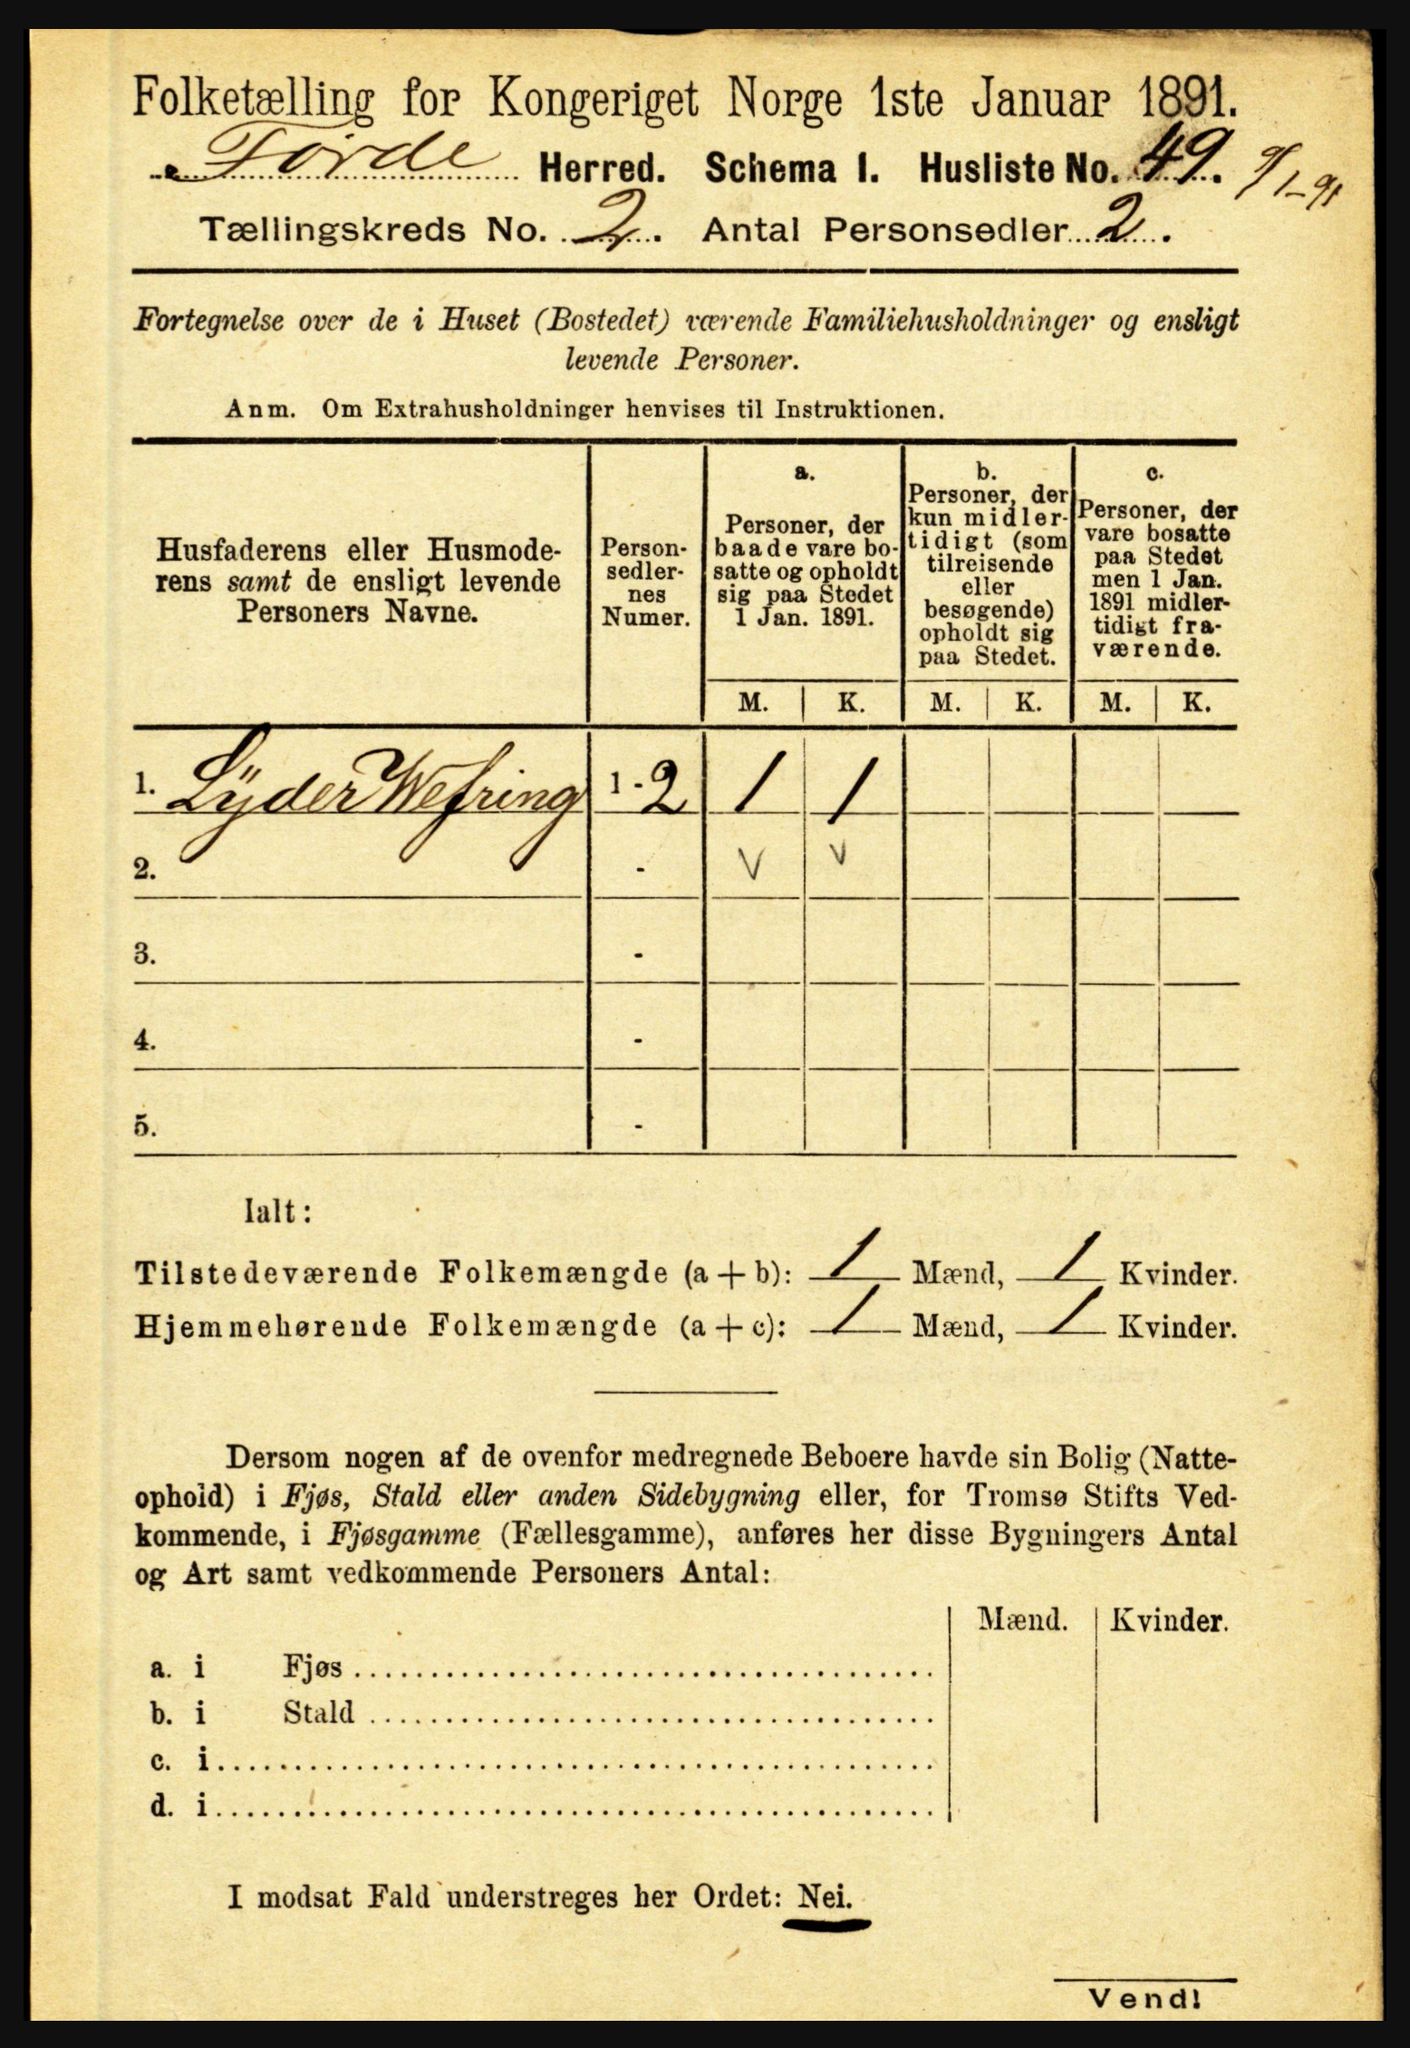 Folketælling for Kongeriget Norge 1ste Januar 1891.
Førde Herred. Schema I. Husliste No. 49. 9/1-91
Tællingskreds No. 2. Antal Personsedler 2.
Fortegnelse over de i Huset (Bostedet) værende Familiehusholdninger og ensligt
levende Personer.
Anm. Om Extrahusholdninger henvises til Instruktionen.
Husfaderens eller Husmode-
rens samt de ensligt levende
Personers Navne.
Person-
sedler-
nes
Numer.
a.
Personer, der
baade vare bo-
satte og opholdt
sig paa Stedet
1 Jan. 1891.
b.
Personer, der
kun midler-
tidigt (som
tilreisende
eller
besøgende)
opholdt sig
paa Stedet.
c.
Personer, der
vare bosatte
paa Stedet
men 1 Jan.
1891 midler-
tidigt fra-
værende.
M. K. M. K. M. K.
1. Lyder Wefring 1 - 2 1 1
2. - V V
3. -
4. -
5. -
Ialt:
Tilstedeværende Folkemængde (a + b): 1 Mænd, 1 Kvinder.
Hjemmehørende Folkemængde (a + c): 1 Mænd, 1 Kvinder.
Dersom nogen af de ovenfor medregnede Beboere havde sin Bolig (Natte-
ophold) i Fjøs, Stald eller anden Sidebygning eller, for Tromsø Stifts Ved-
kommende, i Fjøsgamme (Fællesgamme), anføres her disse Bygningers Antal
og Art samt vedkommende Personers Antal:
Mænd. Kvinder.
a. i Fjøs
b. i Stald
c. i
d. i
I modsat Fald understreges her Ordet: Nei.
Vend!